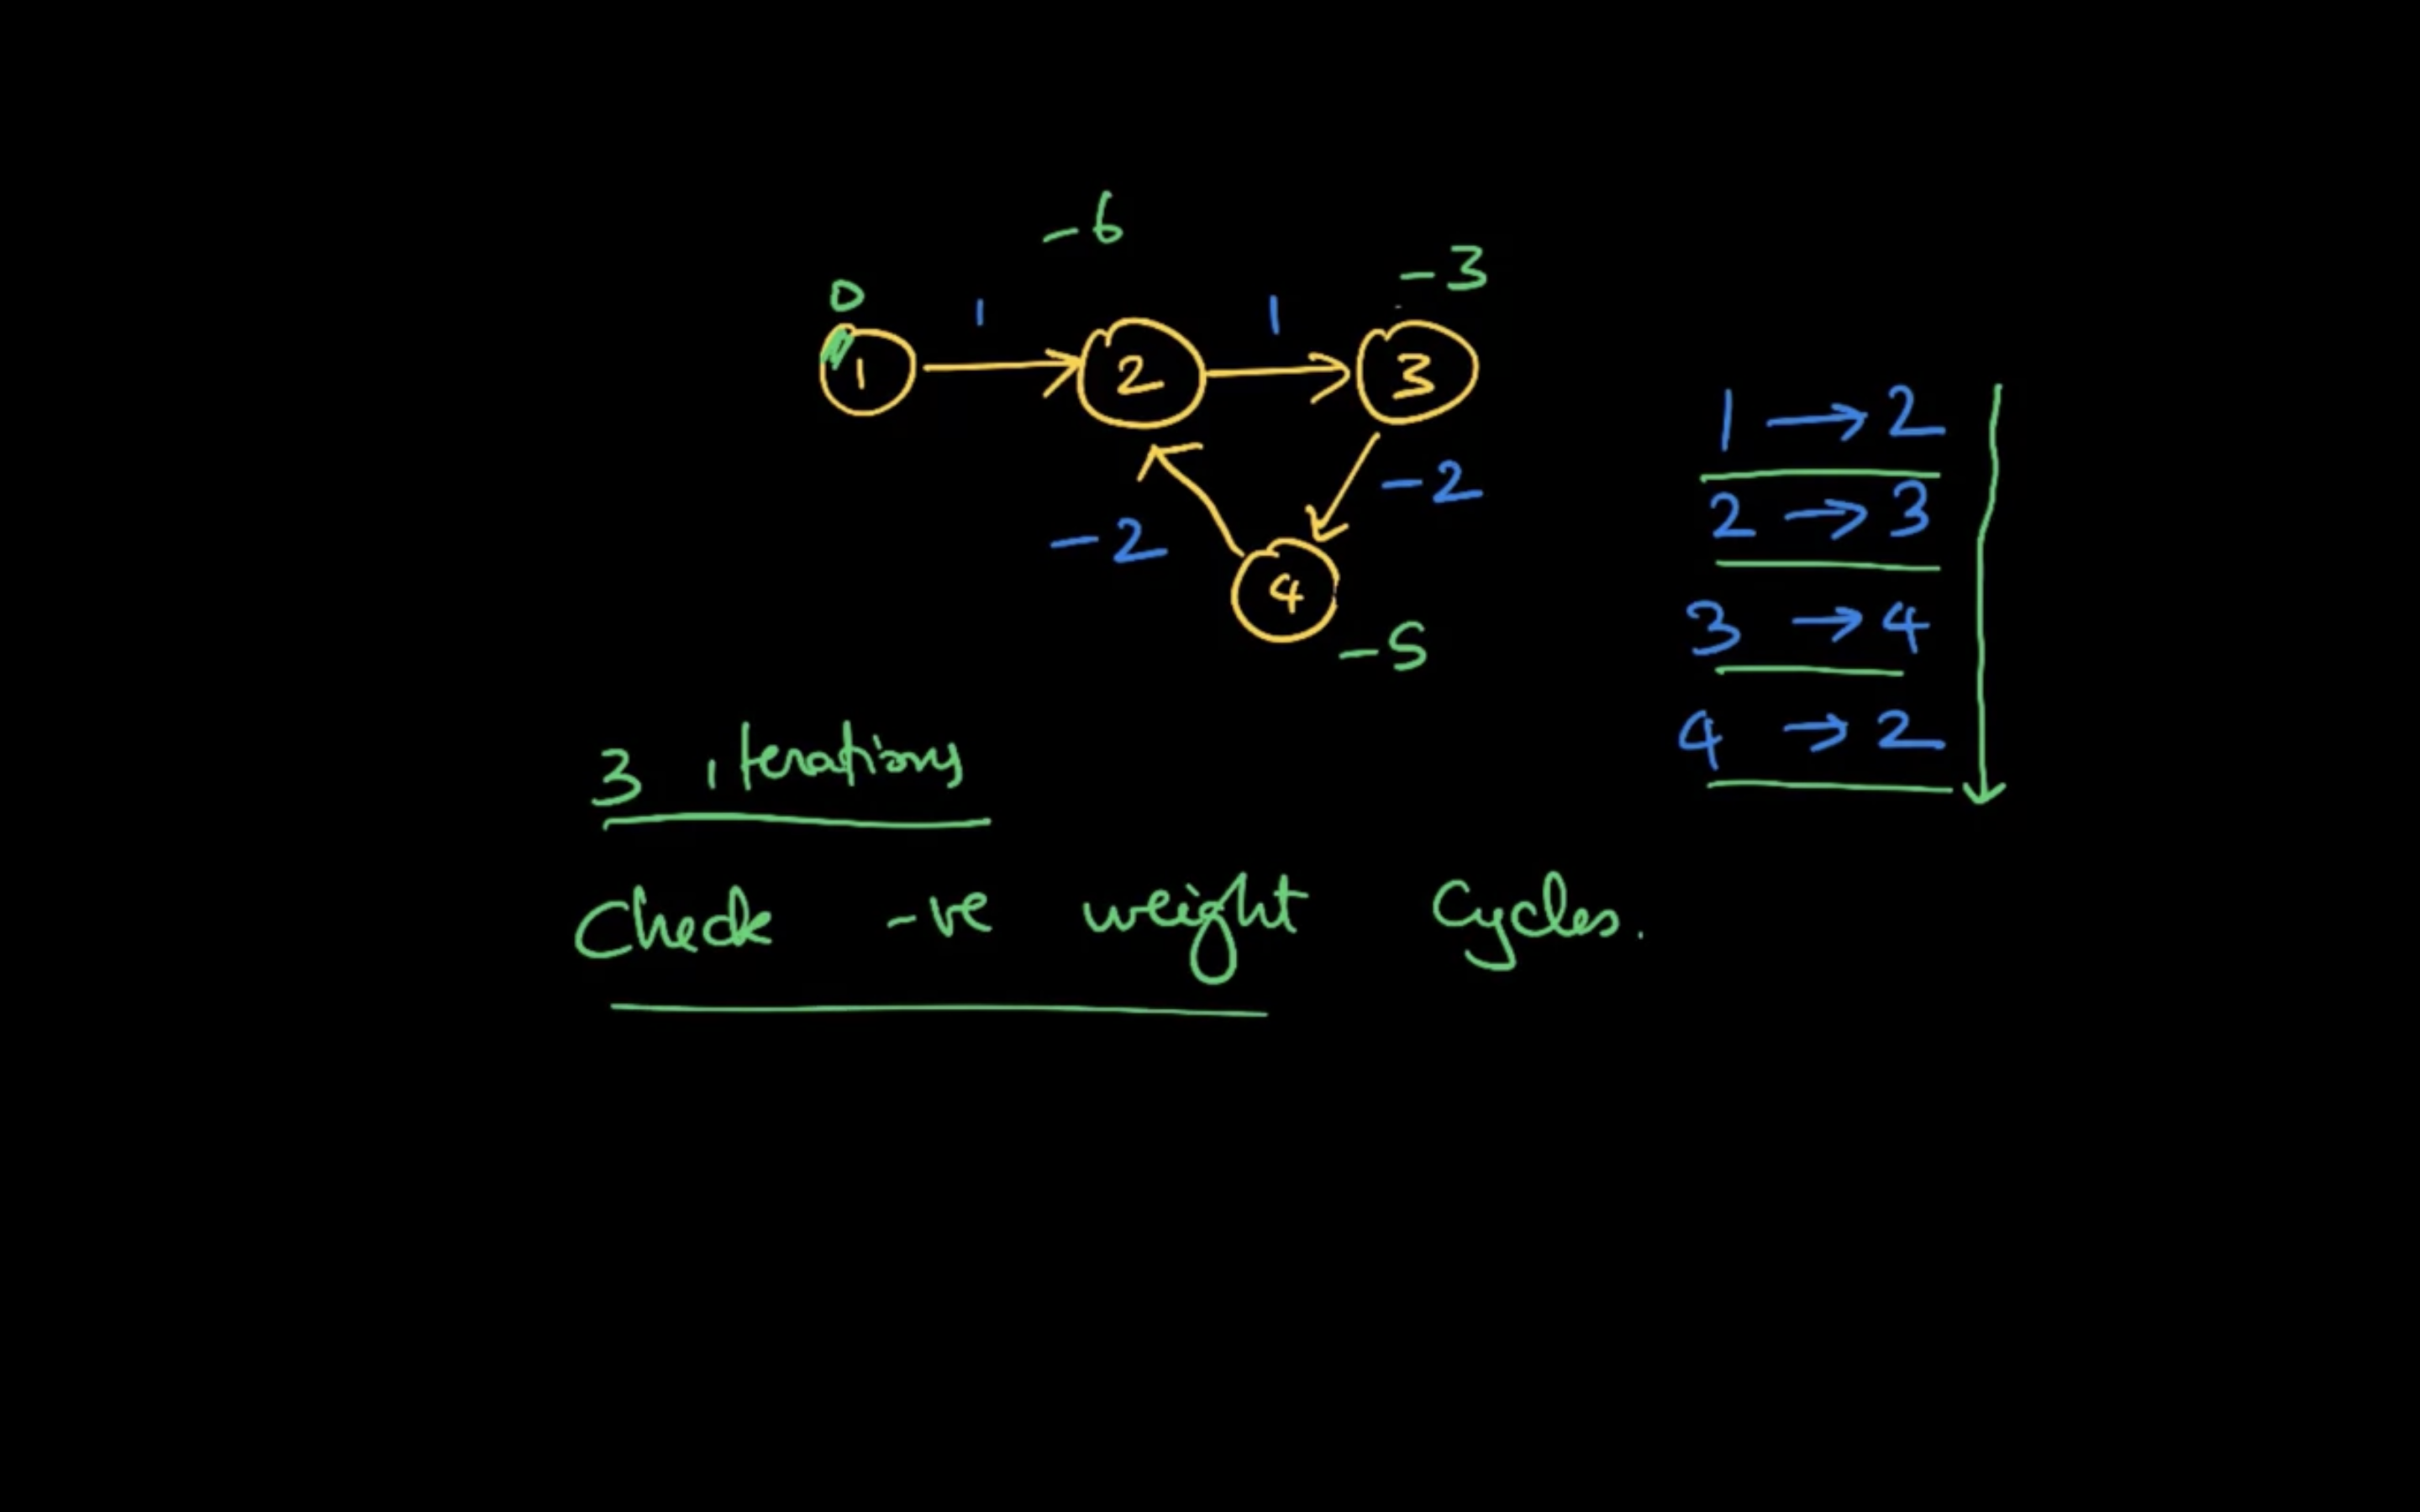 -6
-3
0
1
1
1
2
3
-2
-2
4
-5
1 → 2
2 → 3
3 → 4
4 → 2
3 iterations
Check -ve weight Cycles.